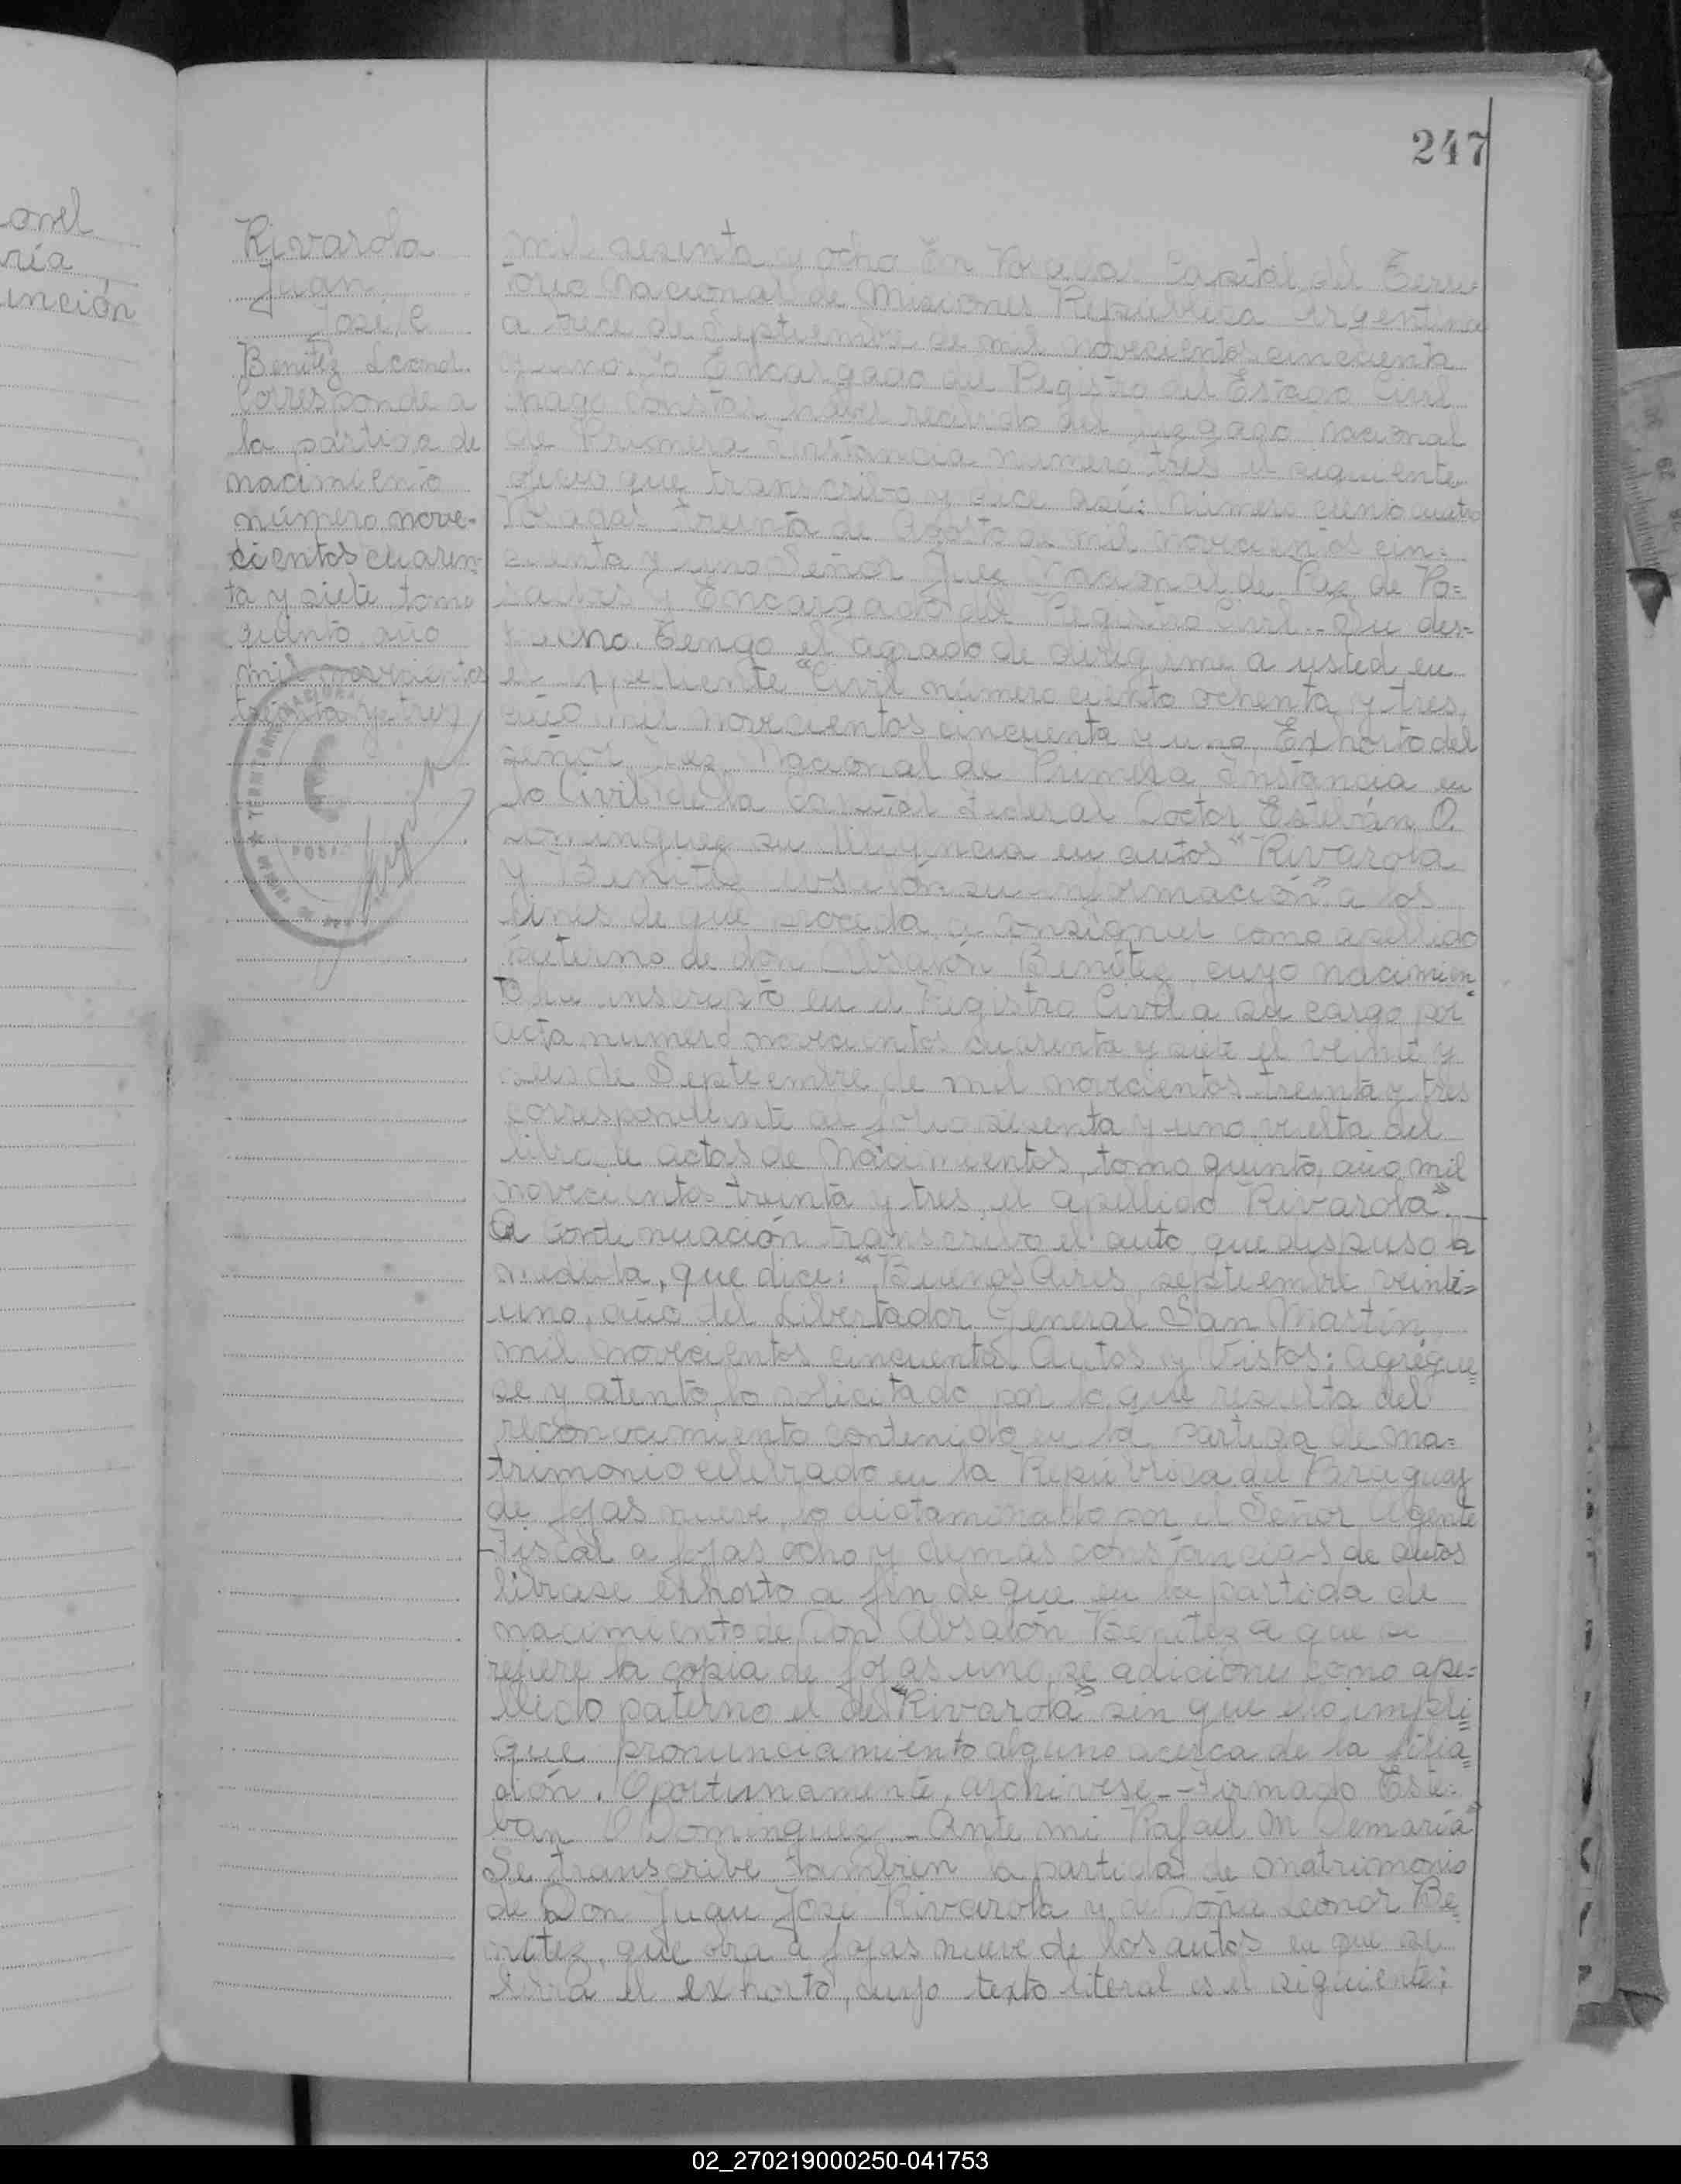 247
onel
ría
unción
Rivarola
Juan
José C
Benítez Leonor
Corresponde a
la partida de
nacimiento
número nove-
cientos cuaren-
ta y siete tomo
quinto año
mil novecientos
treinta y tres
mil sesenta y ocho En Posadas Capital del Terri
torio Nacional de Misiones República Argentina
a trece de Septiembre de mil novecientos cincuenta
y uno. Yo Encargado del Registro del Estado Civil
hago constar haber recibido del juzgado nacional
de Primera Instancia numero tres el siguiente
oficio que transcribo y dice así: Número ciento cuatro
Posadas treinta de Agosto de mil novecientos cin=
cuenta y uno Señor Juez Nacional de Paz de Po=
sadas y Encargado del Registro Civil. Su des=
pacho. Tengo el agrado de dirigirme a usted en
el expediente "Civil número ciento ochenta y tres
año mil novecientos cincuenta y uno, Exhorto del
señor Juez Nacional de Primera Instancia en
lo Civil de la Capital Federal Doctor Estebán O.
Dominguez su diligencia en autos "Rivarola
y Benítez su información" a los
fines de que proceda a consignar como apellido
paterno de don Absalón Benítez, cuyo nacimien=
to fue inscripto en el Registro Civil a su cargo por
acta numero novecientos cuarenta y siete el veinte y
seis de Septiembre de mil novecientos treinta y tres
correspondiente al folio sesenta y uno vuelta del
libro de actas de Nacimientos, tomo quinto, año mil
novecientos treinta y tres, el apellido Rivarola".
A continuación transcribo el auto que dispuso la
medida, que dice: "Buenos Aires, septiembre veinti=
uno, año del Libertador General San Martín,
mil novecientos cincuenta. Autos y Vistos: agrégue=
se y atento lo solicitado por lo que resulta del
reconocimiento contenido en la partida de ma=
trimonio celebrado en la República del Paraguay
de fojas nueve, lo dictaminado por el Señor Agente
Fiscal a fojas ocho y demas constancias de autos
librase exhorto a fin de que en la partida de
nacimiento de Don Absalón Benítez a que se
refiere la copia de fojas uno, se adicione como ape=
llido paterno el de "Rivarola" sin que eso impli=
que pronunciamiento alguno acerca de la filia=
ción. Oportunamente, archivese. - Firmado Este=
ban O Dominguez. - Ante mi Rafael M Demaría"
Se transcribe tambien la partida de matrimonio
de Don Juan José Rivarola y de Doña Leonor Be=
nítez, que obra a fojas nueve de los autos en que se
libra el exhorto, cuyo texto literal es el siguiente:
02_270219000250-041753